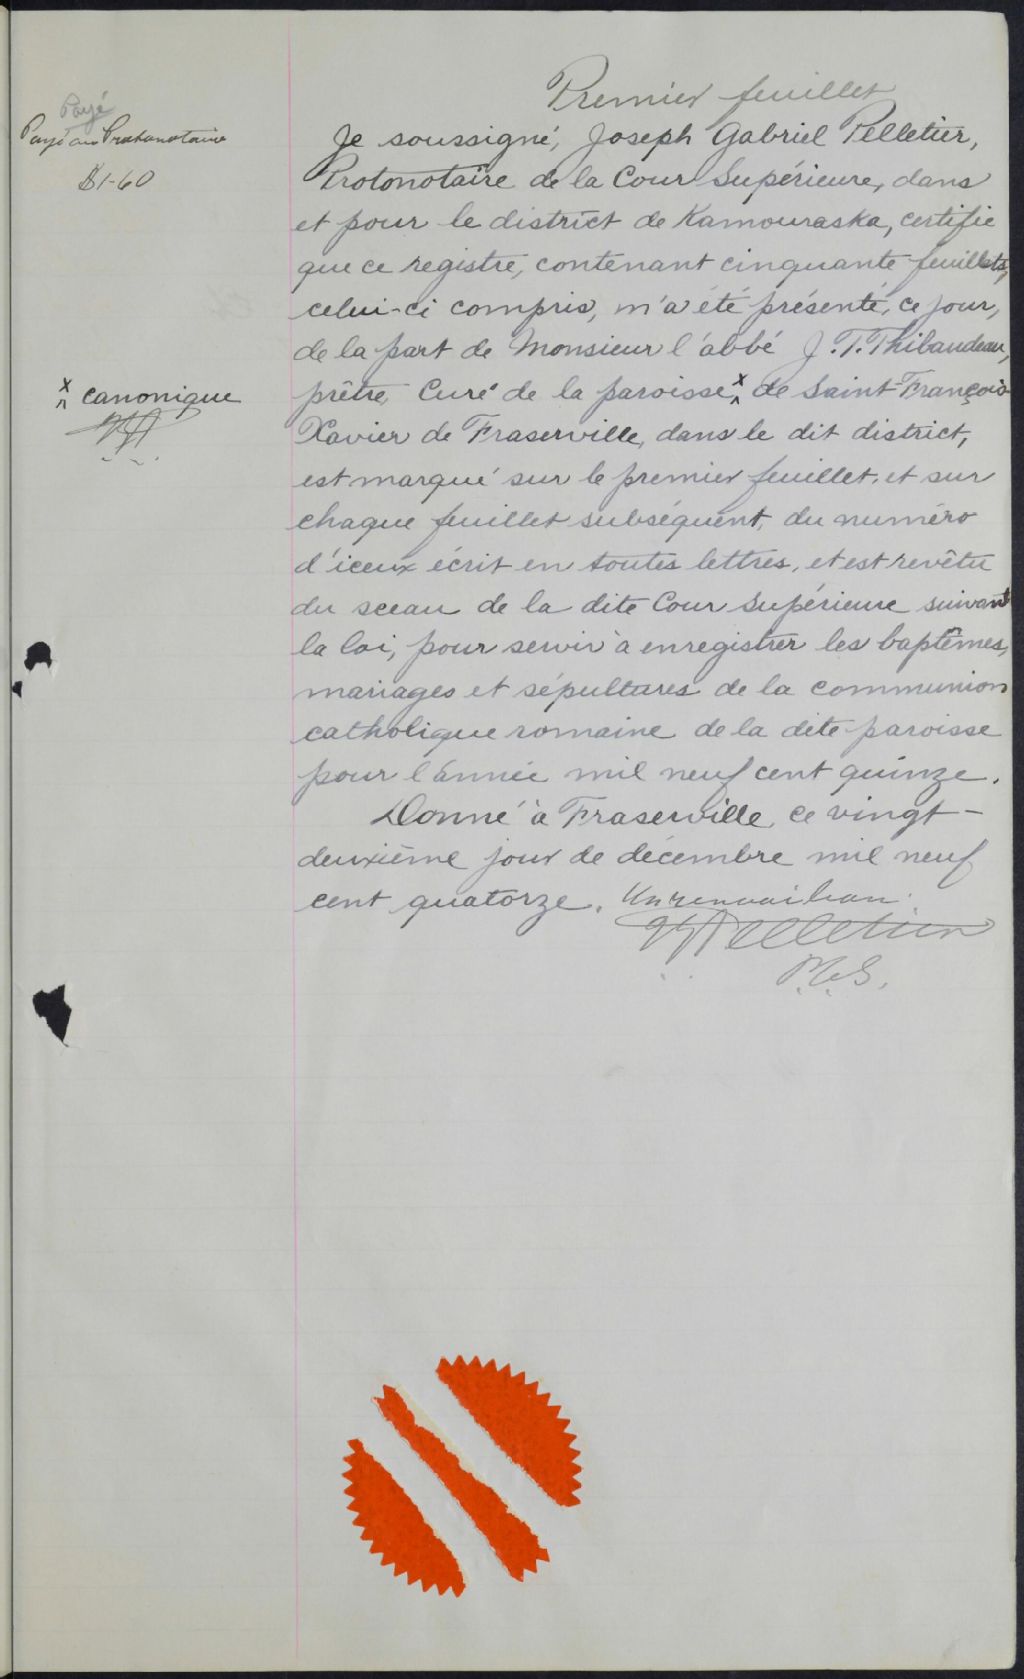 Premier feuillet
Payé
Payé au Protonotaire
$1-60
Je soussigné, Joseph Gabriel Pelletier,
Protonotaire de la Cour Supérieure, dans
et pour le district de Kamouraska, certifie
que ce registre, contenant cinquante feuillets,
celui-ci compris, m'a été présenté, ce jour,
de la part de Monsieur l'abbé J. T. Thibaudeau,
prêtre, Curé de la paroisse x de Saint-François-
x canonique
Xavier de Fraserville, dans le dit district,
est marqué sur le premier feuillet, et sur
chaque feuillet subséquent, du numéro
d'iceux écrit en toutes lettres, et est revêtu
du sceau de la dite Cour Supérieure suivant
la loi, pour servir à enregistrer les baptêmes,
mariages et sépultures de la communion
catholique romaine de la dite paroisse
pour l'année mil neuf cent quinze.
Donné à Fraserville, ce vingt-
deuxième jour de décembre mil neuf
cent quatorze. Un renvoi bon.
JGPelletier
P.C.S.